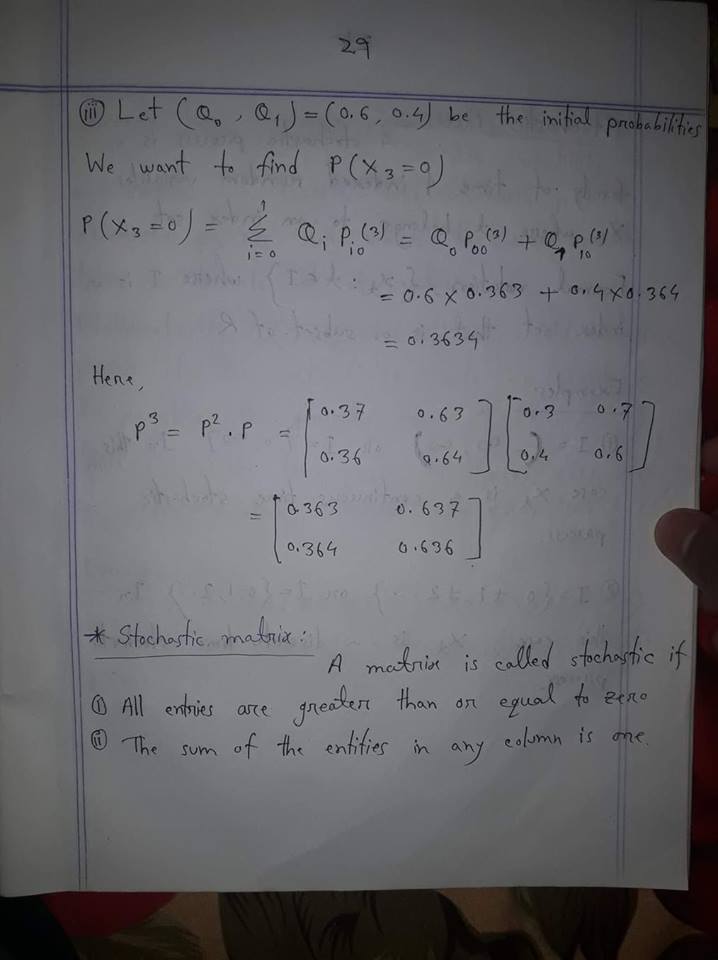 29
(iii) Let (Q₀, Q₁) = (0.6, 0.4) be the initial probabilities
We want to find P(X₃=0)
P(X₃=0) = ∑ᵢ₌₀¹ Qᵢ Pᵢ₀⁽³⁾ = Q₀ P₀₀⁽³⁾ + Q₁ P₁₀⁽³⁾
= 0.6 × 0.363 + 0.4 × 0.364
= 0.3634
Here,
P³ = P² . P = [0.37 0.63] [0.3 0.7]
[0.36 0.64] [0.4 0.6]
= [0.363 0.637]
[0.364 0.636]
* Stochastic matrix:
A matrix is called stochastic if
(i) All entries are greater than or equal to zero
(ii) The sum of the entities in any column is one.